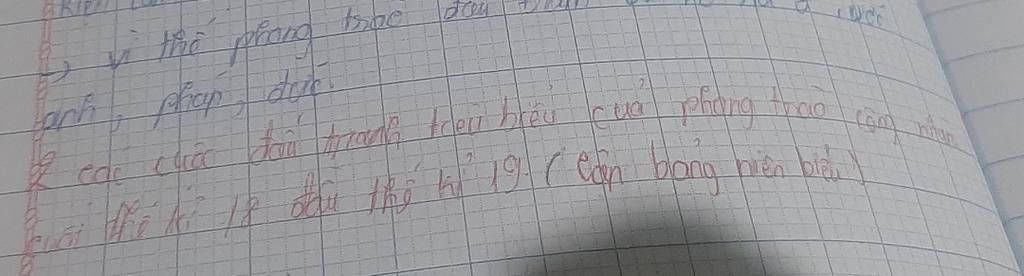 → vì thế phong trào đấu tranh nổ ở nước
anh, pháp, đức.
2 các cuộc đấu tranh tiêu biểu của phong trào công nhân
cuối thế kỉ 18 đầu thế kỉ 19 (lập bảng niên biểu)